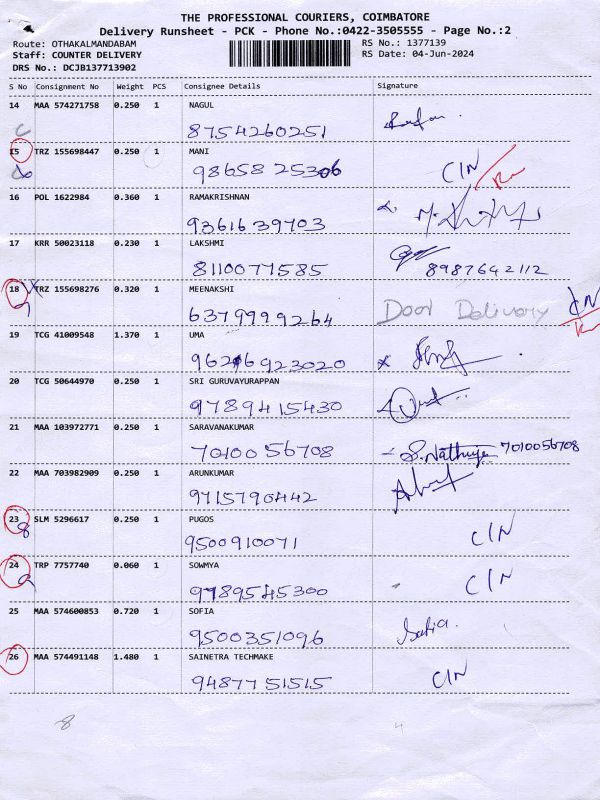 THE PROFESSIONAL COURIERS, COIMBATORE
Delivery Runsheet - PCK - Phone No.:0422-3505555 - Page No.:2
Route: OTHAKALMANDABAM RS No.: 1377139
Staff: COUNTER DELIVERY RS Date: 04-Jun-2024
DRS No.: DCJB137713902
S No Consignment No Weight PCS Consignee Details Signature
14 MAA 574271758 0.250 1 NAGUL
8754260251
15 TRZ 155698447 0.250 1 MANI
98658 25306 C/N
16 POL 1622984 0.360 1 RAMAKRISHNAN
9361639703
17 KRR 50023118 0.230 1 LAKSHMI
8110077585 8987642112
18 TRZ 155698276 0.320 1 MEENAKSHI
6379999264 Door Delivery C/N
19 TCG 41009548 1.370 1 UMA
9626923020
20 TCG 50644970 0.250 1 SRI GURUVAYURAPPAN
9789415430
21 MAA 103972771 0.250 1 SARAVANAKUMAR
7010056708 S. Nathiya 7010056708
22 MAA 703982909 0.250 1 ARUNKUMAR
9715790442
23 SLM 5296617 0.250 1 PUGOS
8 9500910071 C/N
24 TRP 7757740 0.060 1 SOWMYA
9789545300 C/N
25 MAA 574600853 0.720 1 SOFIA
9500351096 Sofia
26 MAA 574491148 1.480 1 SAINETRA TECHMAKE
9487751515 C/N
8 4